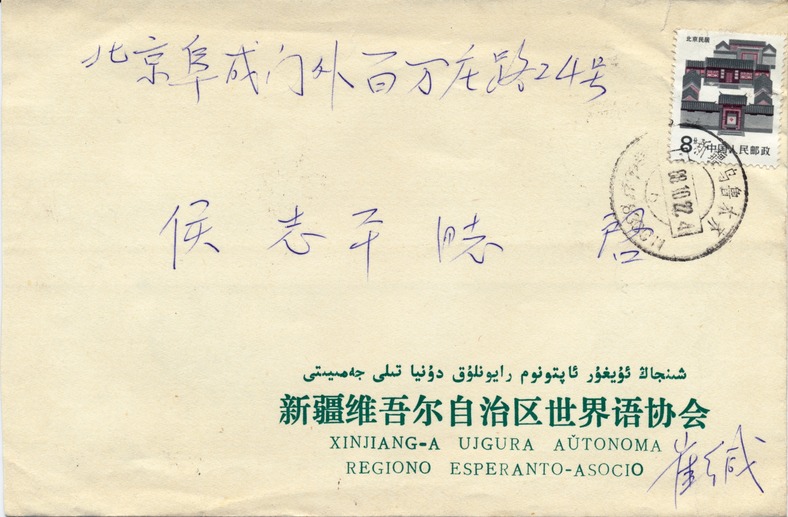 北京阜成门外百万庄路24号
北京民居
8分
中国人民邮政
新疆乌鲁木齐
88.10.22.4
侯志平 同志 启
شىنجاڭ ئۇيغۇر ئاپتونوم رايونلۇق دۇنيا تىلى جەمىيىتى
新疆维吾尔自治区世界语协会
XINJIANG-A UJGURA AŬTONOMA
REGIONO ESPERANTO-ASOCIO
崔缄